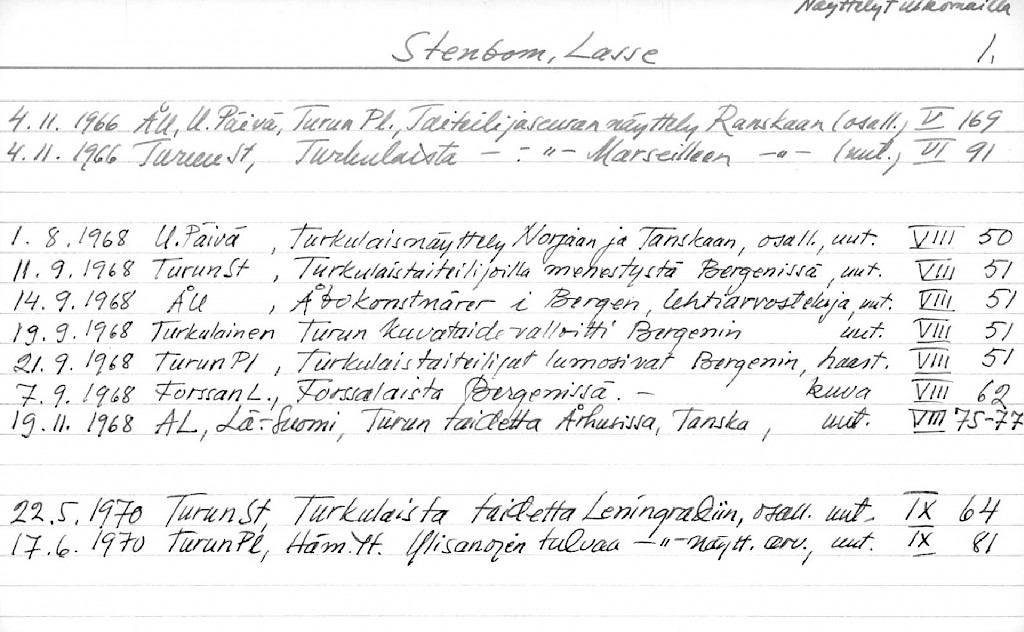 Näyttelyt ulkomailla
Stenbom, Lasse 1.
4.11.1966 ÅU, U.Päivä, Turun Pl., Taiteilijaseuran näyttely Ranskaan (osall., V 169
4.11.1966 TurunSt, Turkulaista - : -"- Marseilleen -"- (uut., VI 91
1.8.1968 U.Päivä, Turkulaisnäyttely Norjaan ja Tanskaan, osall., uut. VIII 50
11.9.1968 TurunSt, Turkulaistaiteilijoilla menestystä Bergenissä, uut. VIII 51
14.9.1968 ÅU, Åbokonstnärer i Bergen, lehtiarvosteluja, uut. VIII 51
19.9.1968 Turkulainen Turun kuvataide valloitti Bergenin uut. VIII 51
21.9.1968 TurunPl, Turkulaistaiteilijat lumosivat Bergenin, haast. VIII 51
7.9.1968 ForssanL., Forssalaista Bergenissä. - kuva VIII 62
19.11.1968 AL, Lä-Suomi, Turun taidetta Århusissa, Tanska, uut. VIII 75-77
22.5.1970 TurunSt, Turkulaista taidetta Leningradiin, osall. uut. IX 64
17.6.1970 TurunPl, Häm.Yt. Ylisanojen tulvaa -"- näytt. arv., uut. IX 81